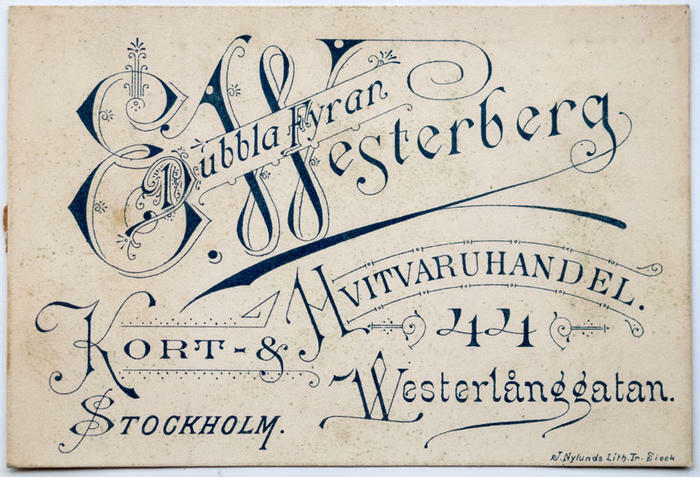 E. Westerberg
Dubbla Fyran
Kort- & Hvitvaruhandel.
44
Stockholm.
Westerlånggatan.
J. Nylunds Lith. Tr.